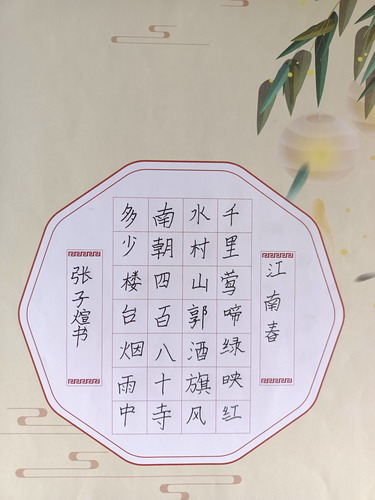 江南春
千里莺啼绿映红
水村山郭酒旗风
南朝四百八十寺
多少楼台烟雨中
张子煊书